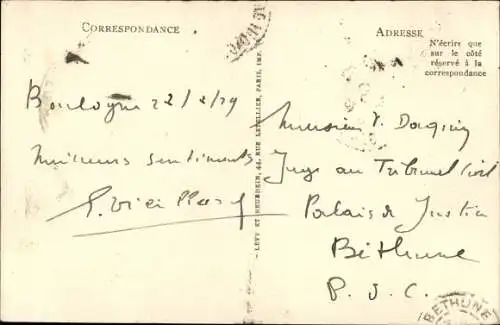 CORRESPONDANCE
Boulogne 22/2/29
Meilleurs sentiments
LEVY ET NEURDEIN, 44, RUE LETELLIER, PARIS, IMP.
ADRESSE
N'écrire que
sur le côté
réservé à la
correspondance
Monsieur
Juge au Tribunal Civil
Palais de Justice
Béthune
P. d. C.
BETHUNE